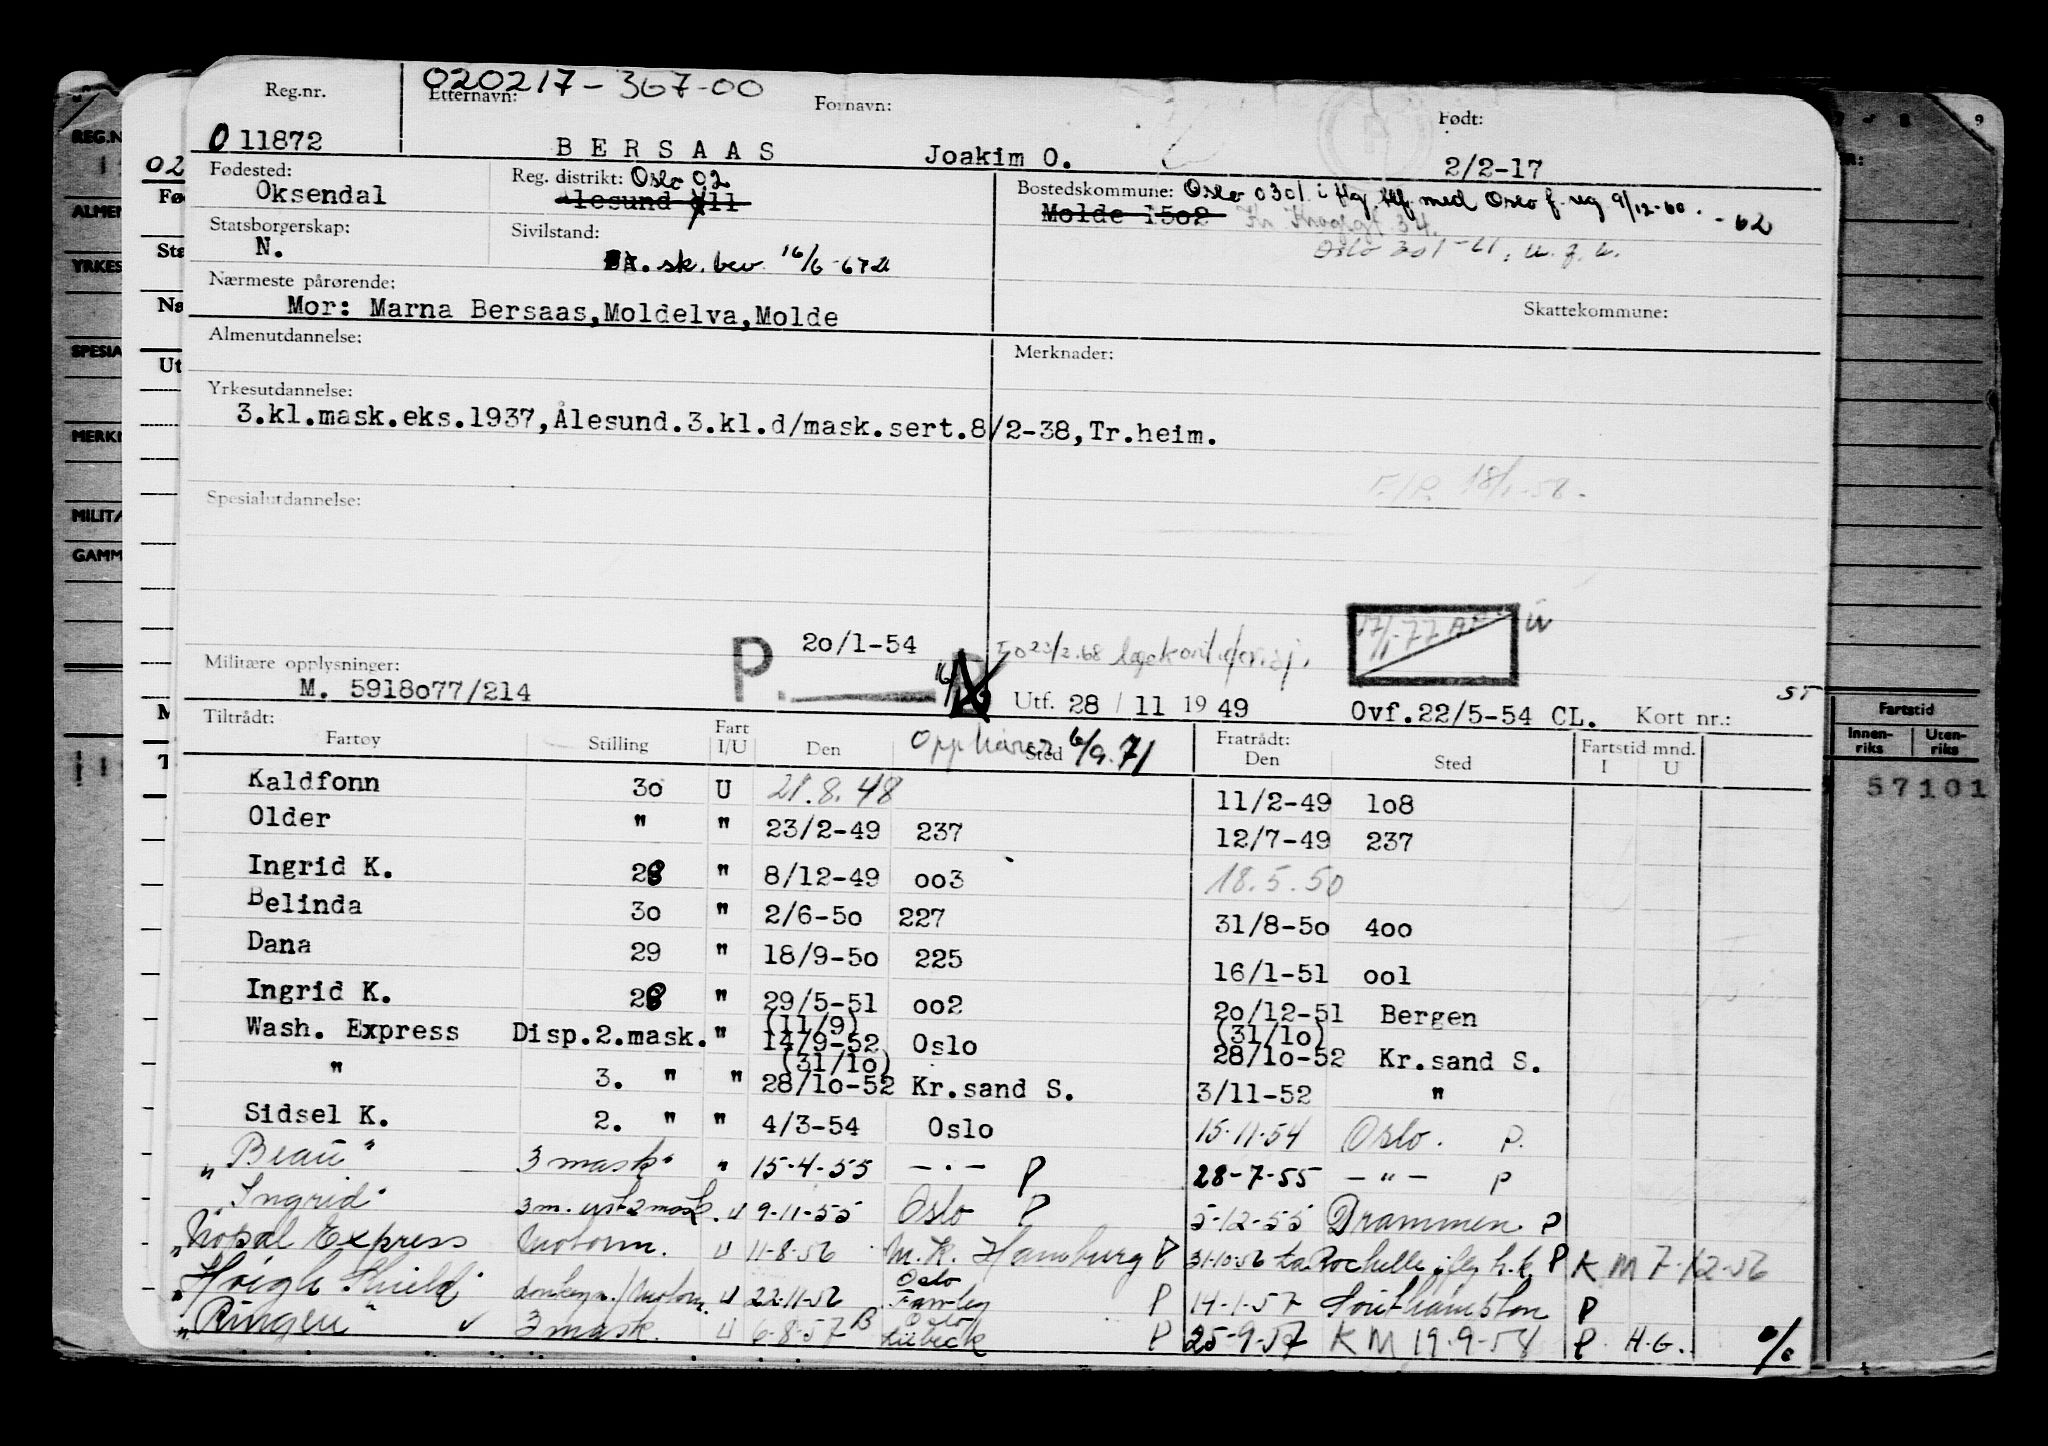 020217-367-00
Reg.nr. Etternavn: Fornavn: Født:
0 11872 BERSAAS Joakim O. 2/2-17
Fødested: Reg. distrikt: Oslo 02 Bostedskommune: Oslo 0301 i flg. tlf med Oslo f. reg 9/12-60. -62
Oksendal Ålesund 11 Molde 1502 Kr. Kroggt 34.
Statsborgerskap: Sivilstand: Oslo 301
N. sk. bev. 16/6-67
Nærmeste pårørende: Skattekommune:
Mor: Marna Bersaas,Moldelva,Molde
Almenutdannelse: Merknader:
Yrkesutdannelse:
3.kl.mask.eks.1937,Ålesund.3.kl.d/mask.sert.8/2-38,Tr.heim.
18/1-58.
Spesialutdannelse:
P. 20/1-54 23/2.68 17/1-77
Militære opplysninger:
M. 5918o77/214 Utf. 28 / 11 19 49 Ovf.22/5-54 CL. Kort nr.: ST
Tiltrådt: Opphører 6/9.71 Fratrådt:
Fartøy Stilling Fart I/U Den Sted Den Sted Fartstid mnd. I U
Kaldfonn 3o U 21.8.48 11/2-49 1o8
Older " " 23/2-49 237 12/7-49 237
Ingrid K. 28 " 8/12-49 oo3 18.5.50
Belinda 3o " 2/6-5o 227 31/8-5o 4oo
Dana 29 " 18/9-5o 225 16/1-51 oo1
Ingrid K. 28 " 29/5-51 oo2 2o/12-51 Bergen
(11/9) (31/1o)
Wash. Express Disp.2.mask. " 14/9-52 Oslo 28/1o-52 Kr.sand S.
(31/1o)
" 3. " " 28/1o-52 Kr.sand S. 3/11-52 "
Sidsel K. 2. " " 4/3-54 Oslo 15.11.54 Oslo. P.
"Beau" 3 mask. " 15-4-55 - . - P 28-7-55 - " - P
"Ingrid" 3 m. 2 mask. U 9-11-55 Oslo P 5-12-55 Drammen P
"Nopal Express Motorm. U 11-8-56 M.K. Hamburg P 31-10-56 La Rochelle P K M 7-12-56
"Høegh Shield" donkeym./Motorm. U 22-11-56 Oslo P 14-1-57 Southampton P
"Ringen" ✓ 3 mask. U 6-8-57 B Oslo Lübeck P 25-9-57 K M 19.9-58 P. H.G.
REG.N
ALMEN
YRKES
SPESIA
MERKN
MILITÆ
GAMM
02
Fø
Sta
Næ
Ut
M
T
Fartstid
Innen-riks Uten-riks
57101